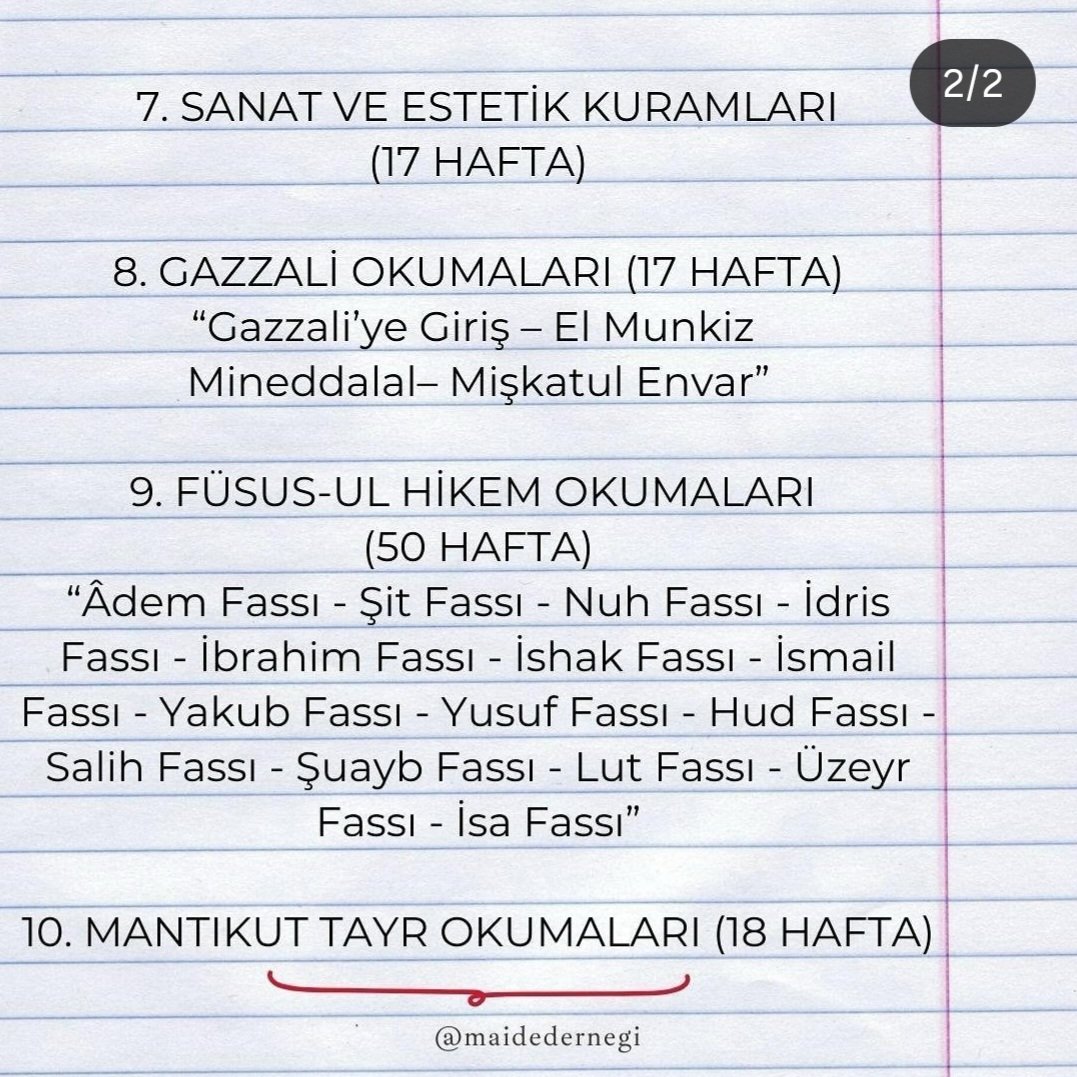 2/2
7. SANAT VE ESTETİK KURAMLARI
(17 HAFTA)
8. GAZZALİ OKUMALARI (17 HAFTA)
“Gazzali’ye Giriş – El Munkiz
Mineddalal– Mişkatul Envar”
9. FÜSUS-UL HİKEM OKUMALARI
(50 HAFTA)
“Âdem Fassı - Şit Fassı - Nuh Fassı - İdris
Fassı - İbrahim Fassı - İshak Fassı - İsmail
Fassı - Yakub Fassı - Yusuf Fassı - Hud Fassı -
Salih Fassı - Şuayb Fassı - Lut Fassı - Üzeyr
Fassı - İsa Fassı”
10. MANTIKUT TAYR OKUMALARI (18 HAFTA)
@maidedernegi